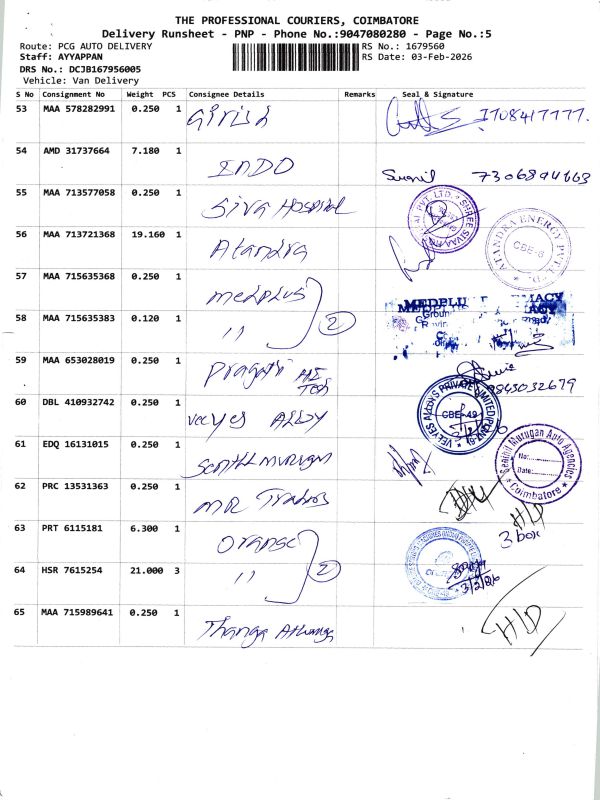 THE PROFESSIONAL COURIERS, COIMBATORE
Delivery Runsheet - PNP - Phone No.:9047080280 - Page No.:5
Route: PCG AUTO DELIVERY
RS No.: 1679560
Staff: AYYAPPAN
RS Date: 03-Feb-2026
DRS No.: DCJB167956005
Vehicle: Van Delivery
S No Consignment No Weight PCS Consignee Details Remarks Seal & Signature
53 MAA 578282991 0.250 1 Girish
54 AMD 31737664 7.180 1 INDO Sunil
55 MAA 713577058 0.250 1 Siva Hospital
56 MAA 713721368 19.160 1 Atandra ATANDRA ENERGY PVT. LTD. CBE-6
57 MAA 715635368 0.250 1 medplus MEDPLU
58 MAA 715635383 0.120 1 11 2
59 MAA 653028019 0.250 1 Pragathi Tech 9843032679
60 DBL 410932742 0.250 1 veeyes Alloy VEEYES ALLOYS PRIVATE LIMITED CBE-49
61 EDQ 16131015 0.250 1 Senthil murugan Senthil Murugan Auto Agencies No: Date: Coimbatore
62 PRC 13531363 0.250 1 MR Traders
63 PRT 6115181 6.300 1 Orange H/D 3 box
64 HSR 7615254 21.000 3 11 2 3/2/26
65 MAA 715989641 0.250 1 Thanga H/D